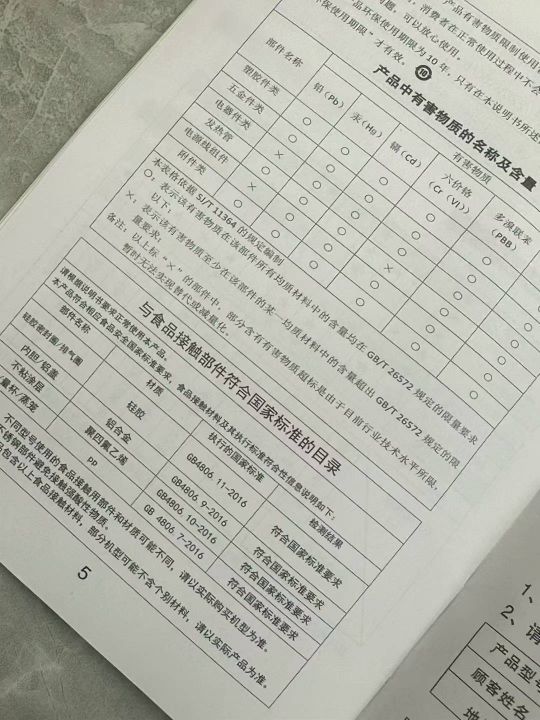 产品有害物质限制使用
消费者在正常使用过程中不会
问题，可以放心使用。
产品环保使用期限为 10 年，只有在本说明书所述
环保使用期限”才有效。 10
产品中有害物质的名称及含量
部件名称 有害物质
铅(Pb) 汞(Hg) 镉(Cd) 六价铬(Cr (VI)) 多溴联苯(PBB)
塑胶件类 ○ ○ ○ ○
五金件类 ○ ○ ○
电器件类 × ○ ○
发热管 ○ ○
电源线组件 × ○
附件类 ○ ○
本表格依据 SJ/T 11364 的规定编制
○：表示该有害物质在该部件所有均质材料中的含量均在 GB/T 26572 规定的限量要求
以下；
×：表示该有害物质至少在该部件的某一均质材料中的含量超出 GB/T 26572 规定的限
量要求；
备注：以上标“×”的部件中，部分含有有害物质超标是由于目前行业技术水平所限，
暂时无法实现替代或减量化。
与食品接触部件符合国家标准的目录
请根据说明书要求正常使用本产品。
本产品符合相应食品安全国家标准要求，食品接触材料及其执行标准符合性信息说明如下：
部件名称 材质 执行的国家标准 检测结果
硅胶密封圈/排气圈 硅胶 GB4806.11-2016 符合国家标准要求
内胆/铝盖 铝合金 GB4806.9-2016 符合国家标准要求
不粘涂层 聚四氟乙烯 GB4806.10-2016 符合国家标准要求
量杯/蒸笼 PP GB 4806.7-2016 符合国家标准要求
不同型号使用的食品接触用部件和材质可能不同，请以实际购买机型为准。
不锈钢部件避免接触强酸性物质。
包含以上食品接触材料，部分机型可能不含个别材料，请以实际产品为准。
5
1、
2、请
产品型号
顾客姓名
地